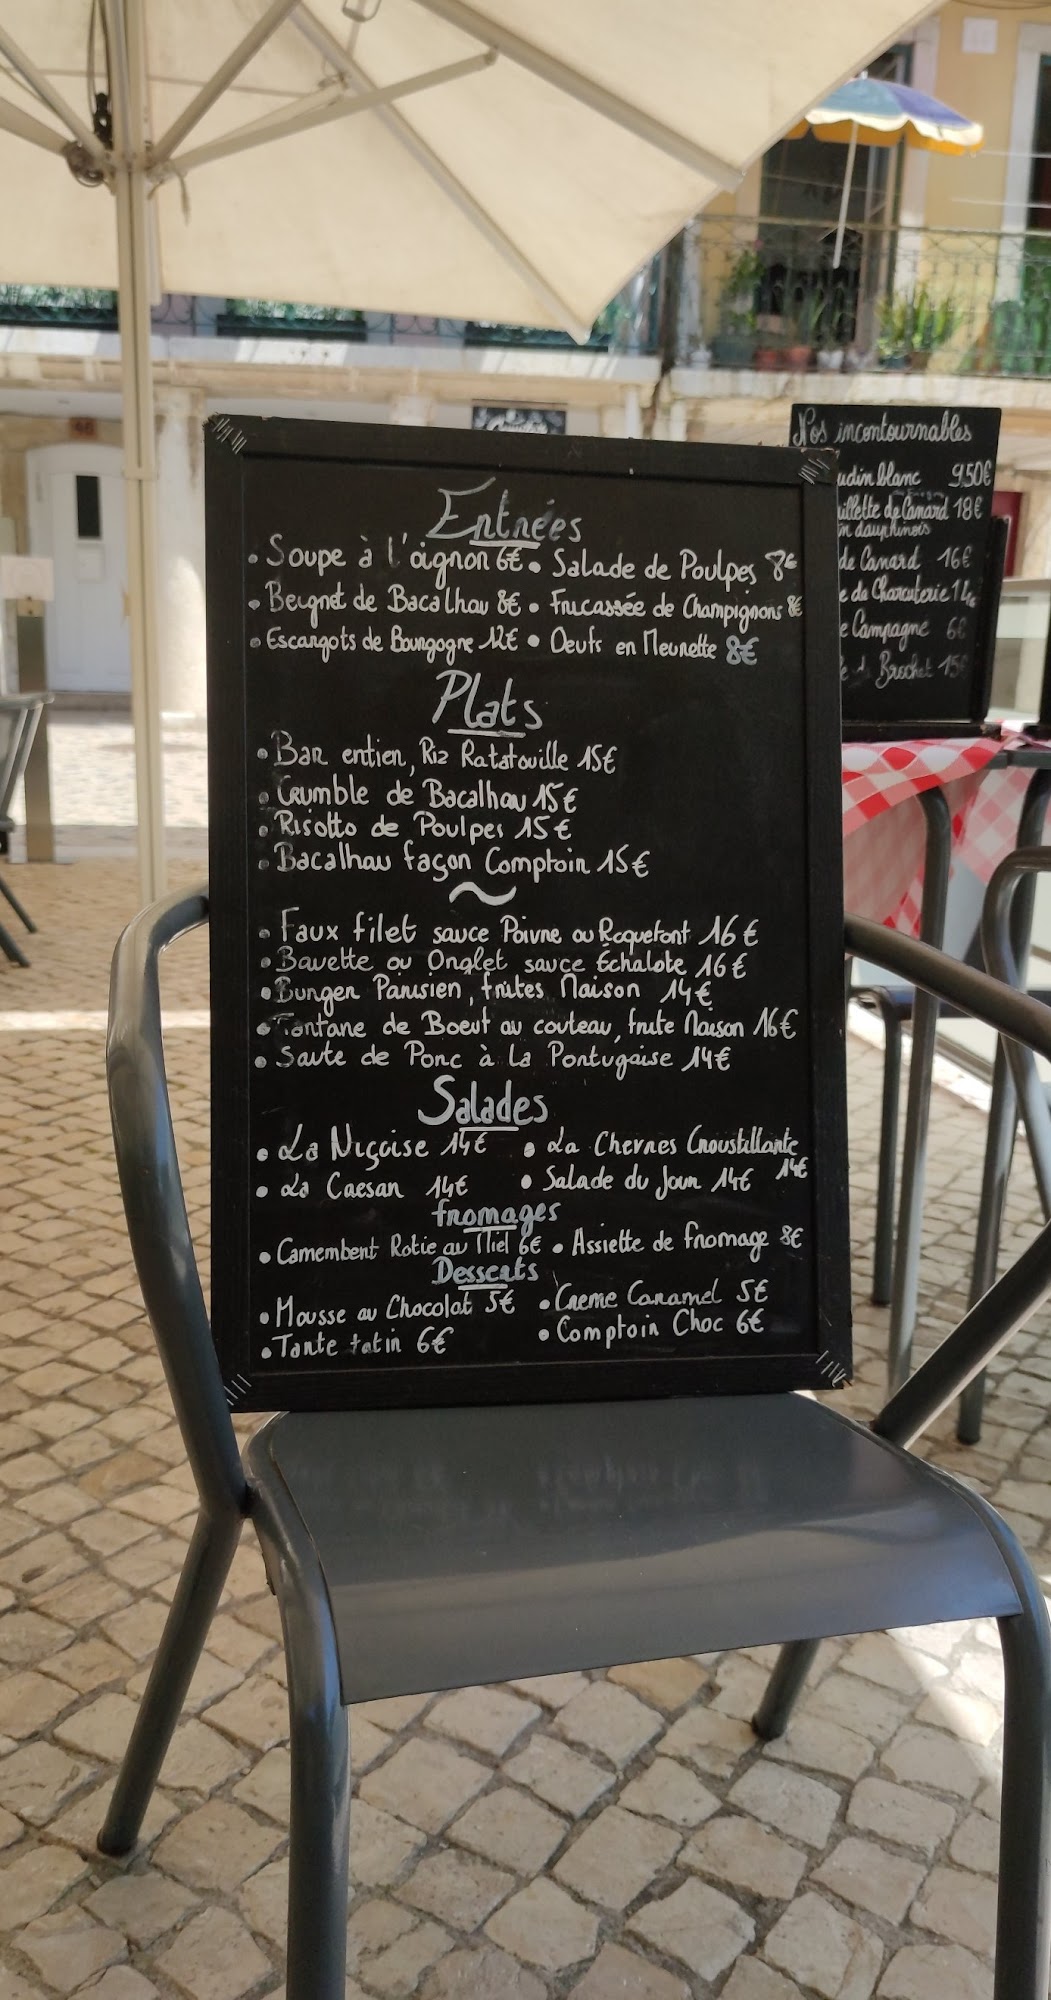 Entrées
• Soupe à l'oignon 6€ • Salade de Poulpes 8€
• Beignet de Bacalhau 8€ • Fricassée de Champignons 8€
• Escargots de Bourgogne 12€ • Oeufs en Meurette 8€
Plats
• Bar entier, Riz Ratatouille 15€
• Crumble de Bacalhau 15€
• Risotto de Poulpes 15€
• Bacalhau façon Comptoir 15€
~
• Faux filet sauce Poivre ou Roquefort 16€
• Bavette ou Onglet sauce Échalote 16€
• Burger Parisien, frites Maison 14€
• Tartare de Boeuf au couteau, frite Maison 16€
• Saute de Porc à La Portugaise 14€
Salades
• La Niçoise 14€ • La Chevres Croustillante 14€
• La Caesar 14€ • Salade du Jour 14€
fromages
• Camembert Rotie au Miel 6€ • Assiette de fromage 8€
Desserts
• Mousse au Chocolat 5€ • Creme Caramel 5€
• Tarte tatin 6€ • Comptoir Choc 6€
Nos incontournables
udin blanc 9,50€
uillette de Canard 18€
in dauphinois
de Canard 16€
e de Charcuterie 14€
e Campagne 6€
Brochet 15€
46